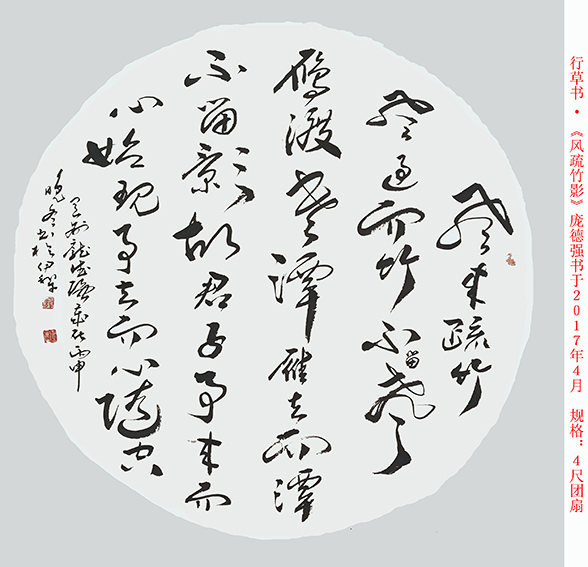 行草书 • 《风疏竹影》庞德强书于2017年4月 规格：4尺团扇
风来疏竹
风过而竹不留声
雁渡寒潭雁去而潭
不留影故君子事来而
心始现事去而心随空
德强岁在丙申
晚冬书于伊犁